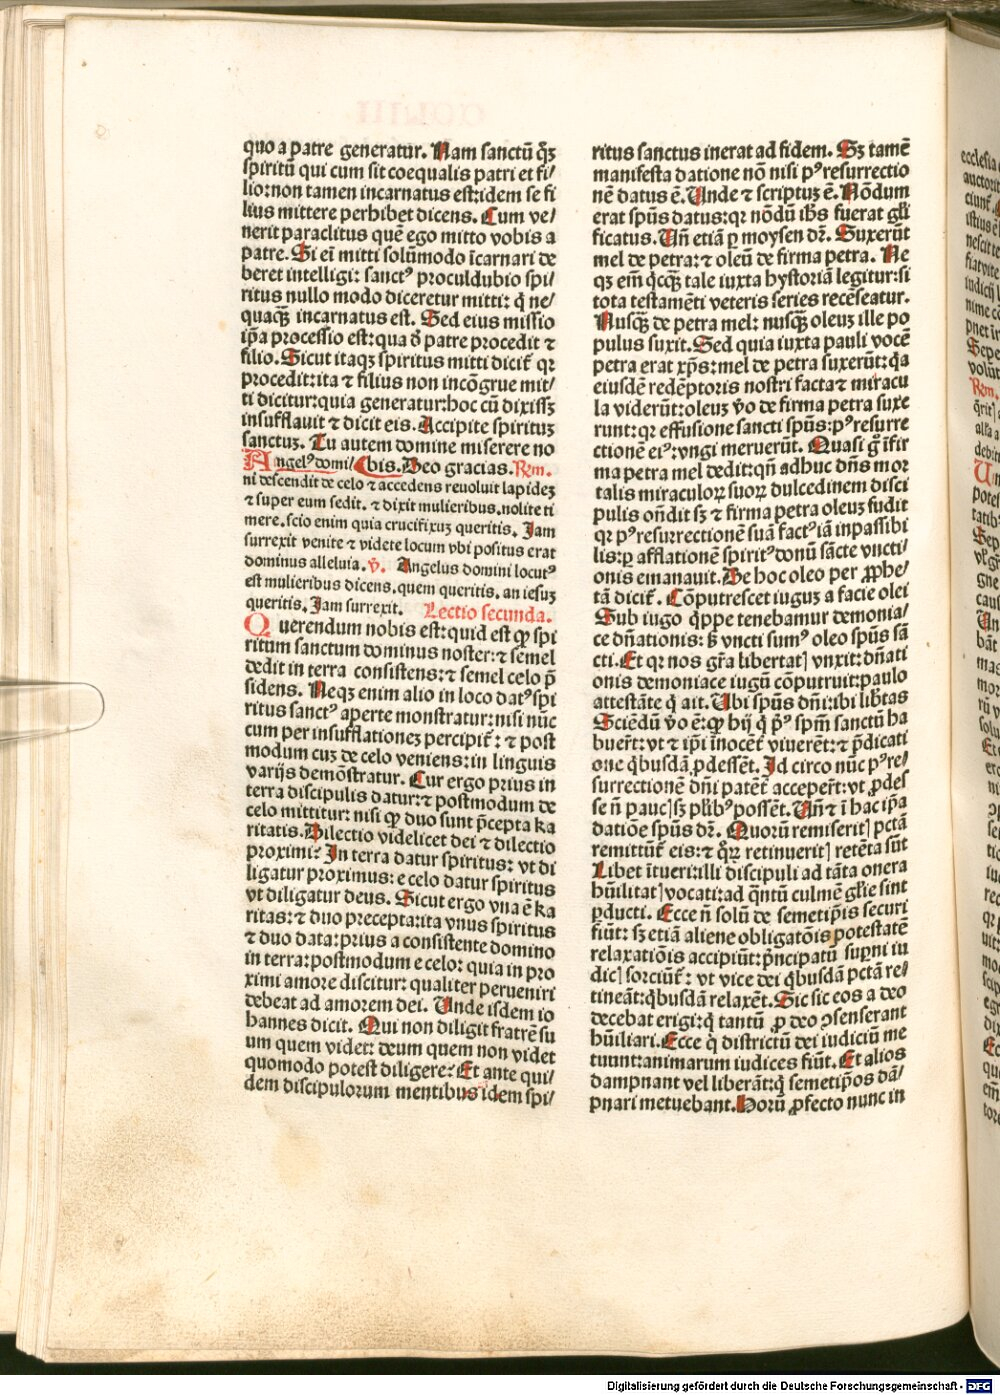 quo a patre generatur. Nam sanctū qꝫ
spiritū qui cum sit coequalis patri et fi⸗
lio: non tamen incarnatus est: idem se fi
lius mittere perhibet dicens. Cum ve⸗
nerit paraclitus quē ego mitto vobis a
patre. Si ei᷒ mitti solūmodo īcarnari de
beret intelligi: sanctꝰ proculdubio spi⸗
ritus nullo modo diceretur mitti: q̄ ne⸗
quaqꝫ incarnatus est. Sed eius missio
ip̄a processio est: qua d̄ patre procedit ⁊
filio. Sicut itaqꝫ spiritus mitti dicit᷑ qr
procedit: ita ⁊ filius non incōgrue mit⸗
ti dicitur: quia generatur: hoc cū dixissꝫ
insufflauit ⁊ dicit eis. Accipite spirituꝫ
sanctuꝫ. Tu autem domine miserere no
Angelꝰ domi⸗ bis. Deo gracias. Rem.
ni descendit de celo ⁊ accedens reuoluit lapideꝫ
⁊ super eum sedit. ⁊ dixit mulieribus. nolite ti
mere. scio enim quia crucifixuꝫ queritis. Jam
surrexit venite ⁊ videte locum vbi positus erat
dominus alleluia. v̄. Angelus domini locutꝰ
est mulieribus dicens. quem queritis. an iesuꝫ
queritis. Jam surrexit. Lectio secunda.
Querendum nobis est: quid est ꝙ spi
ritum sanctum dominus noster: ⁊ semel
dedit in terra consistens: ⁊ semel celo p̄
sidens. Neqꝫ enim alio in loco datꝰ spi
ritus sanctꝰ aperte monstratur: nisi nūc
cum per insufflationeꝫ percipit᷑: ⁊ post
modum cuꝫ de celo veniens: in linguis
varijs demōstratur. Cur ergo prius in
terra discipulis datur: ⁊ postmodum de
celo mittitur: nisi ꝙ duo sunt p̄cepta ka
ritatis. Dilectio videlicet dei ⁊ dilectio
proximi? In terra datur spiritus: vt di
ligatur proximus: e celo datur spiritus
vt diligatur deus. Sicut ergo vna ē ka
ritas: ⁊ duo precepta: ita vnus spiritus
⁊ duo data: prius a consistente domino
in terra: postmodum e celo: quia in pro
ximi amore discitur: qualiter perueniri
debeat ad amorem dei. Unde isdem io
hannes dicit. Qui non diligit fratrē su
um quem videt: deum quem non videt
quomodo potest diligere? Et ante qui⸗
dem discipulorum mentibus idem spi⸗
ritus sanctus inerat ad fidem. Sꝫ tamē
manifesta datione nō nisi pꝰ resurrectio
nē datus ē. Unde ⁊ scriptuꝫ ē. Nōdum
erat spūs datus: qr nōdū ih̄s fuerat gl̄i
ficatus. Un̄ etiā ꝑ moysen dr̄. Suxerūt
mel de petra: ⁊ oleū de firma petra. Ne
qꝫ em̄ q̇cqꝫ tale iuxta hystoriā legitur: si
tota testamēti veteris series recēseatur.
Nusqꝫ de petra mel: nusqꝫ oleuꝫ ille po
pulus suxit. Sed quia iuxta pauli vocē
petra erat xp̄s: mel de petra suxerūt: q̇a
eiusdē redēptoris nostri facta ⁊ miracu
la viderūt: oleuꝫ v̊o de firma petra suxe
runt: qr effusione sancti spūs: pꝰ resurre
ctionē eiꝰ: vngi meruerūt. Quasi g̊ īfir
ma petra mel dedit: qn̄ adhuc dn̄s mor
talis miraculoꝝ suoꝝ dulcedinem disci
pulis on̄dit sꝫ ⁊ firma petra oleuꝫ fudit
qr pꝰ resurrectionē suā factꝰ iā inpassibi
lis: ꝑ afflationē spiritꝰ donū sācte vncti⸗
onis emanauit. De hoc oleo per ꝓphe⸗
tā dicit᷑. Cōputrescet iuguꝫ a facie olei
Sub iugo q̇ppe tenebamur demonia⸗
ce dn̄ationis: sꝫ vncti sumꝰ oleo spūs sā
cti. Et qr nos gr̄a libertatꝭ vnxit: dn̄ati
onis demoniace iugū cōputruit: paulo
attestāte q̇ ait. Ubi spūs dn̄i: ibi lib̄tas
Sciēdū v̊o ē: ꝙ hij q̇ pꝰ spm̄ sanctū ha
buer̄t: vt ⁊ ip̄i īnocēt᷑ viuerēt: ⁊ p̄dicati
one q̇busdā ꝓdessēt. Id circo nūc pꝰ re⸗
surrectionē dn̄i patēt᷑ acceper̄t: vt ꝓdes
se n̄ paucꝭ sꝫ pl̄ibꝰ possēt. Un̄ ⁊ ī hac ip̄a
datiōe spūs dr̄. Quorū remiseritꝭ pctā
remittūt᷑ eis: ⁊ q̊ꝝ retinueritꝭ retēta sūt
Libet ītueri: illi discipuli ad tāta onera
hūilitatꝭ vocati: ad q̄ntū culmē gl̄ie sint
ꝑducti. Ecce n̄ solū de semetip̄is securi
fiūt: sꝫ etiā aliene obligatōis potestatē
relaxatiōis accipiūt: p̄ncipatū suꝑni iu
dicꝭ sorciūt᷑: vt vice dei q̇busdā pctā re⸗
tineāt: q̇busdā relaxēt. Sic sic eos a deo
decebat erigi: q̇ tantū ꝓ deo ꝯsenserant
hūiliari. Ecce q̇ districtū dei iudiciū me
tuunt: animarum iudices fiūt. Et alios
dampnant vel liberāt: q̇ semetip̄os dā⸗
pnari metuebant. Horū ꝓfecto nunc in
Digitalisierung gefördert durch die Deutsche Forschungsgemeinschaft - DFG